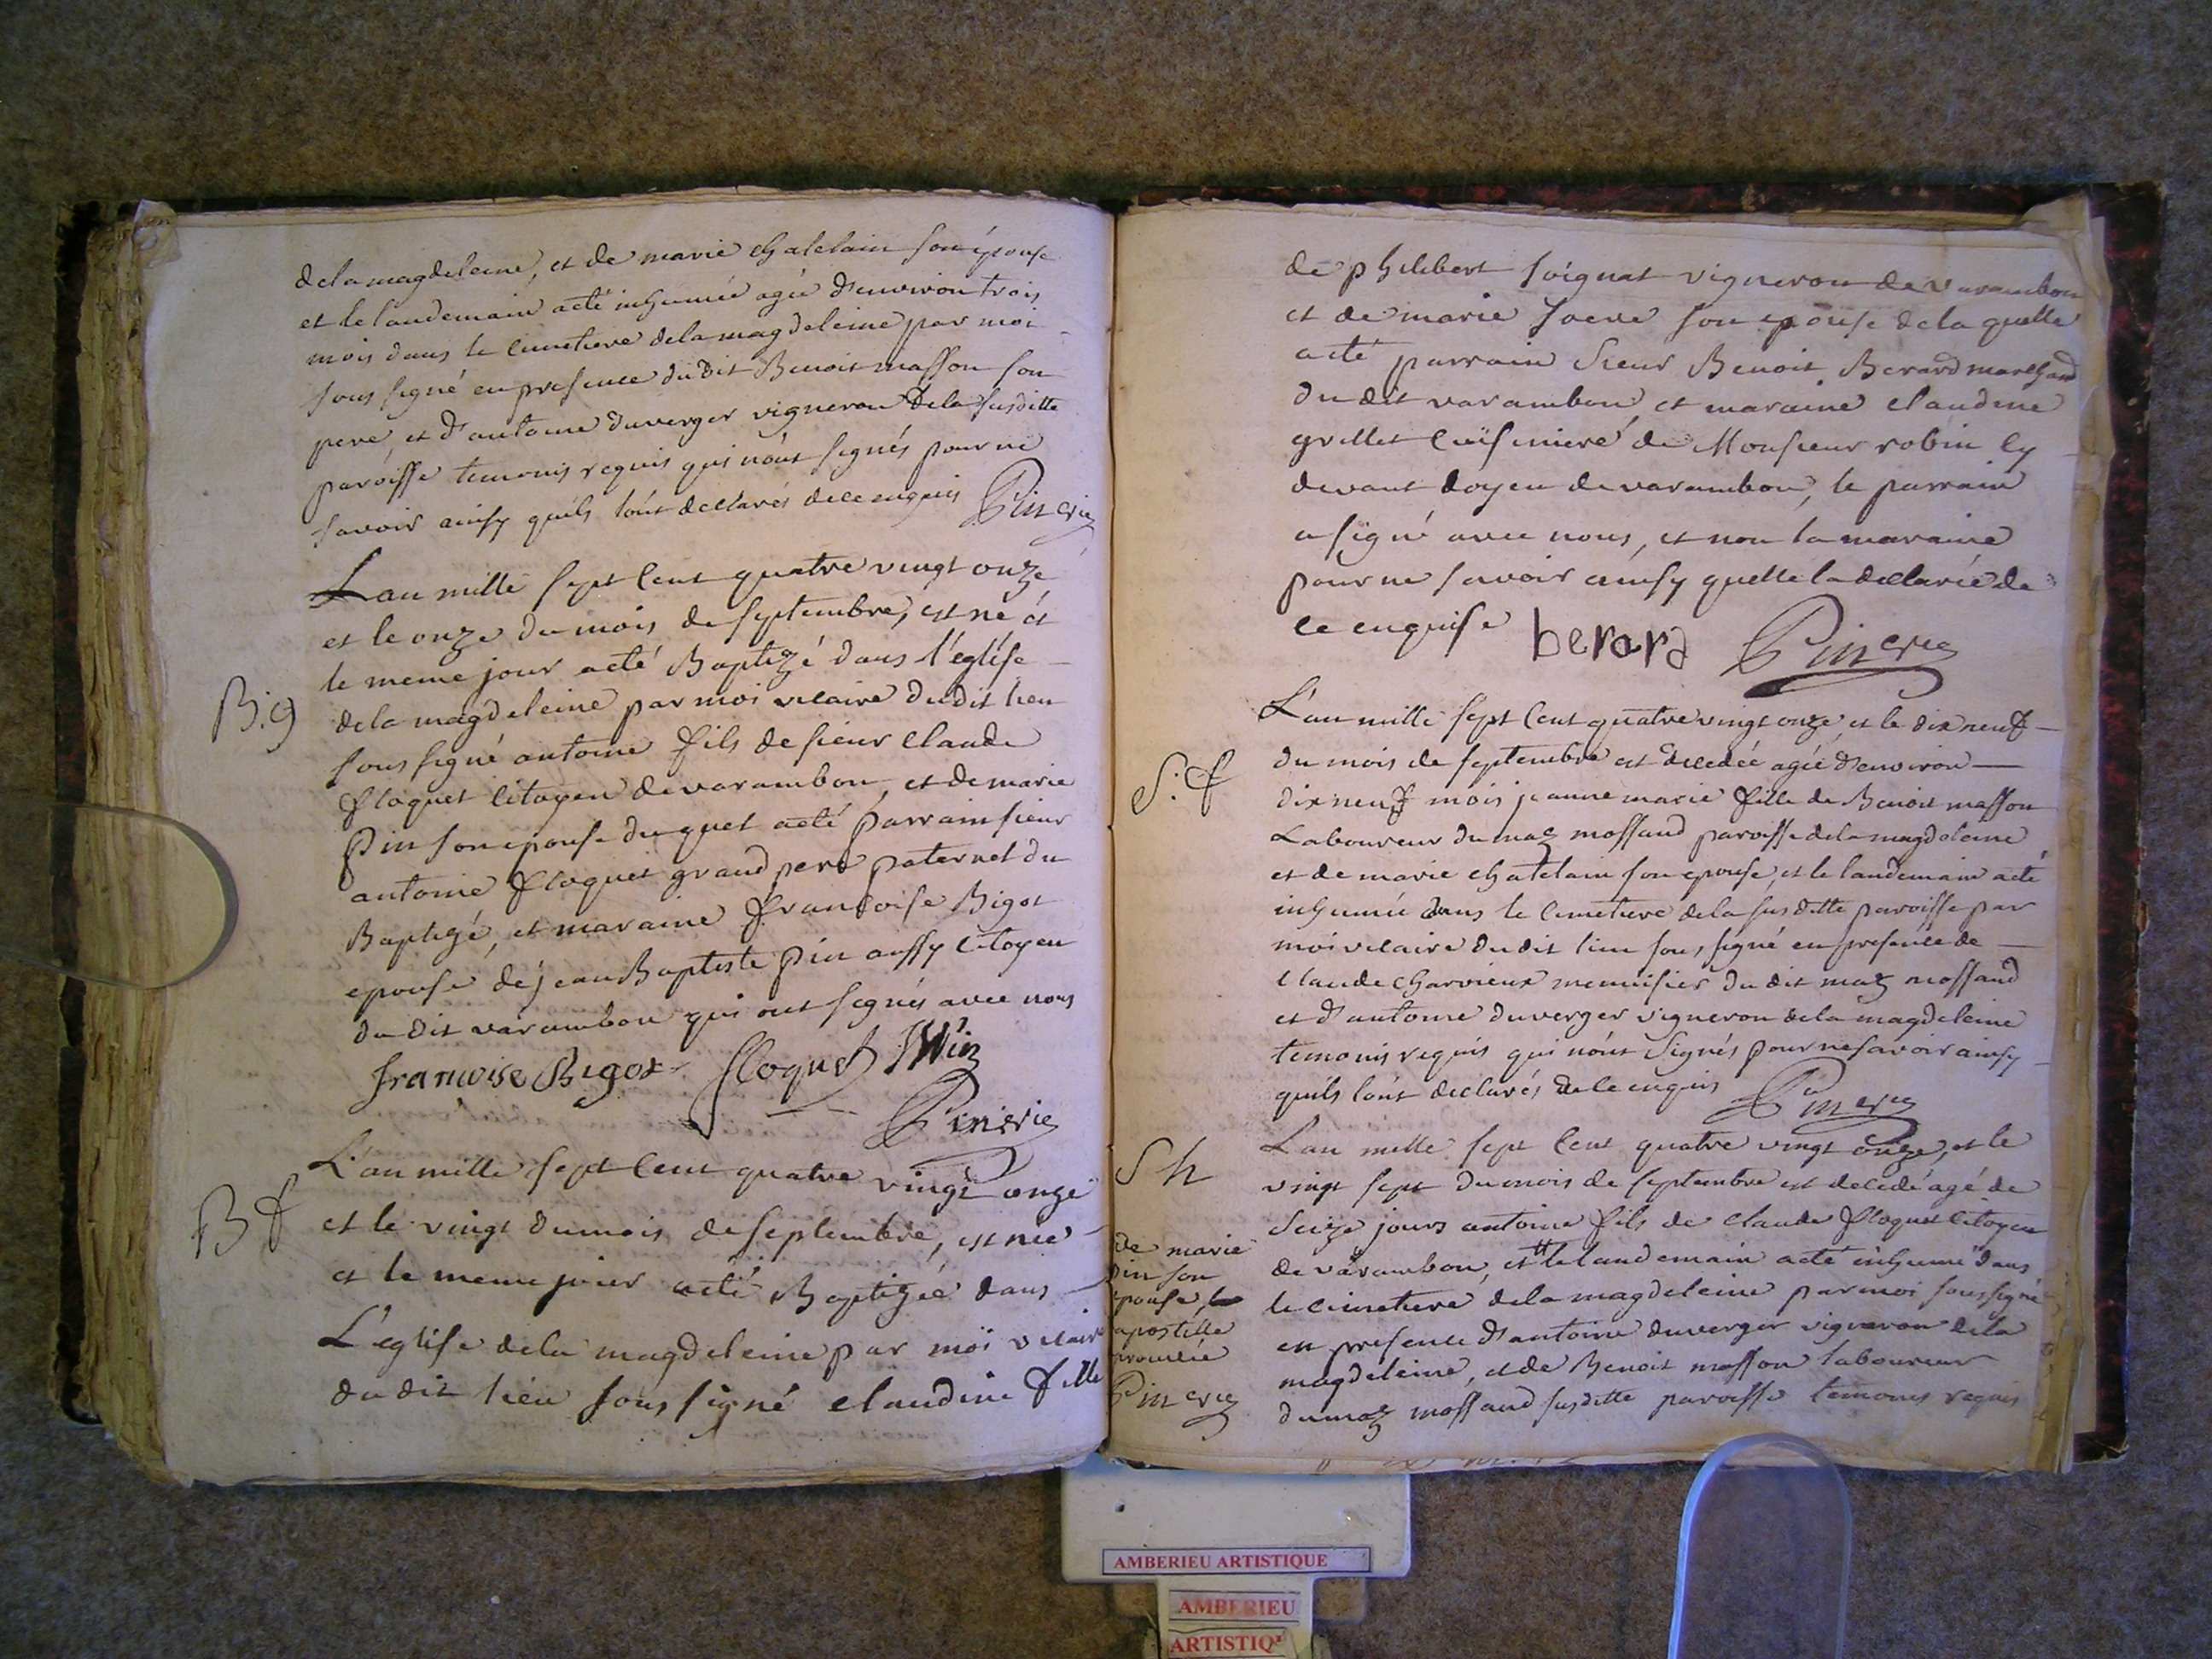 dela magdeleine, et de marie chatelain son épouse
et le landemain acté inhumée agée d'environ trois
mois dans le cimetiere dela magdeleine par moi
sous signé en presence dudit Benoit masson son
pere, et d'antoine duverger vigneron dela susditte
paroisse temoins requis qui n'ont signés pour ne
savoir ainsy quils l'ont declarés de ce enquis Pinerie
L'an mille sept cent quatre vingt onze
et le onze du mois de septembre, est né et
le meme jour acté Baptizé dans l'eglise
B. g
dela magdeleine par moi vicaire dudit lieu
sous signé antoine fils de sieur claude
floquet citoyen de varambon, et de marie
Pin son epouse du quel acté parrain sieur
antoine floquet grand pere paternel du
Baptizé, et maraine françoise Bigot
epouse de jean Baptiste Pin aussy citoyen
du dit varambon qui ont signés avec nous
francoise Bigot floquet
Pinerie
L'an mille sept cent quatre vingt onze
B f
et le vingt du mois de septembre, est née
et le meme jour acté Baptizée dans
L'eglise dela magdeleine par moi vicaire
du dit lieu sous signé claudine fille
de philibert soignat vigneron de varambon
et de marie son epouse dela quelle
acté parrain Sieur Benoit Berard marchand
du dit varambon, et maraine claudine
grillet cuisiniere de Monsieur robin cy
devant doyen de varambon, le parrain
a signé avec nous, et non la maraine
pour ne savoir ainsy quelle la declarée de
ce enquise berard Pinerie
L'an mille sept cent quatre vingt onze, et le dix neuf
S. f
du mois de septembre est decedée agée d'environ
dix neuf mois jeanne marie fille de Benoit masson
Laboureur du maz mossand paroisse dela magdeleine
et de marie chatelain son epouse, et le landemain acté
inhumée dans le cimetiere dela susditte paroisse par
moi vicaire du dit lieu sous signé en presence de
claude charvieux menuisier du dit maz mossand
et d'antoine duverger vigneron dela magdeleine
temoins requis qui n'ont signés pour ne savoir ainsy
quils l'ont declarés de ce enquis Pinerie
L'an mille sept cent quatre vingt onze, et le
S h
vingt sept du mois de septembre est decedé agé de
Seize jours antoine fils de claude floquet citoyen
de varambon, et # le landemain acté inhumé dans
le cimetiere dela magdeleine par moi sous signé
en presence d'antoine duverger vigneron dela
magdeleine, et de Benoit masson laboureur
du maz mossand susditte paroisse temoins requis
de marie
pin son
epouse,
apostille
Pinerie
AMBERIEU ARTISTIQUE
AMBERIEU
ARTISTIQ